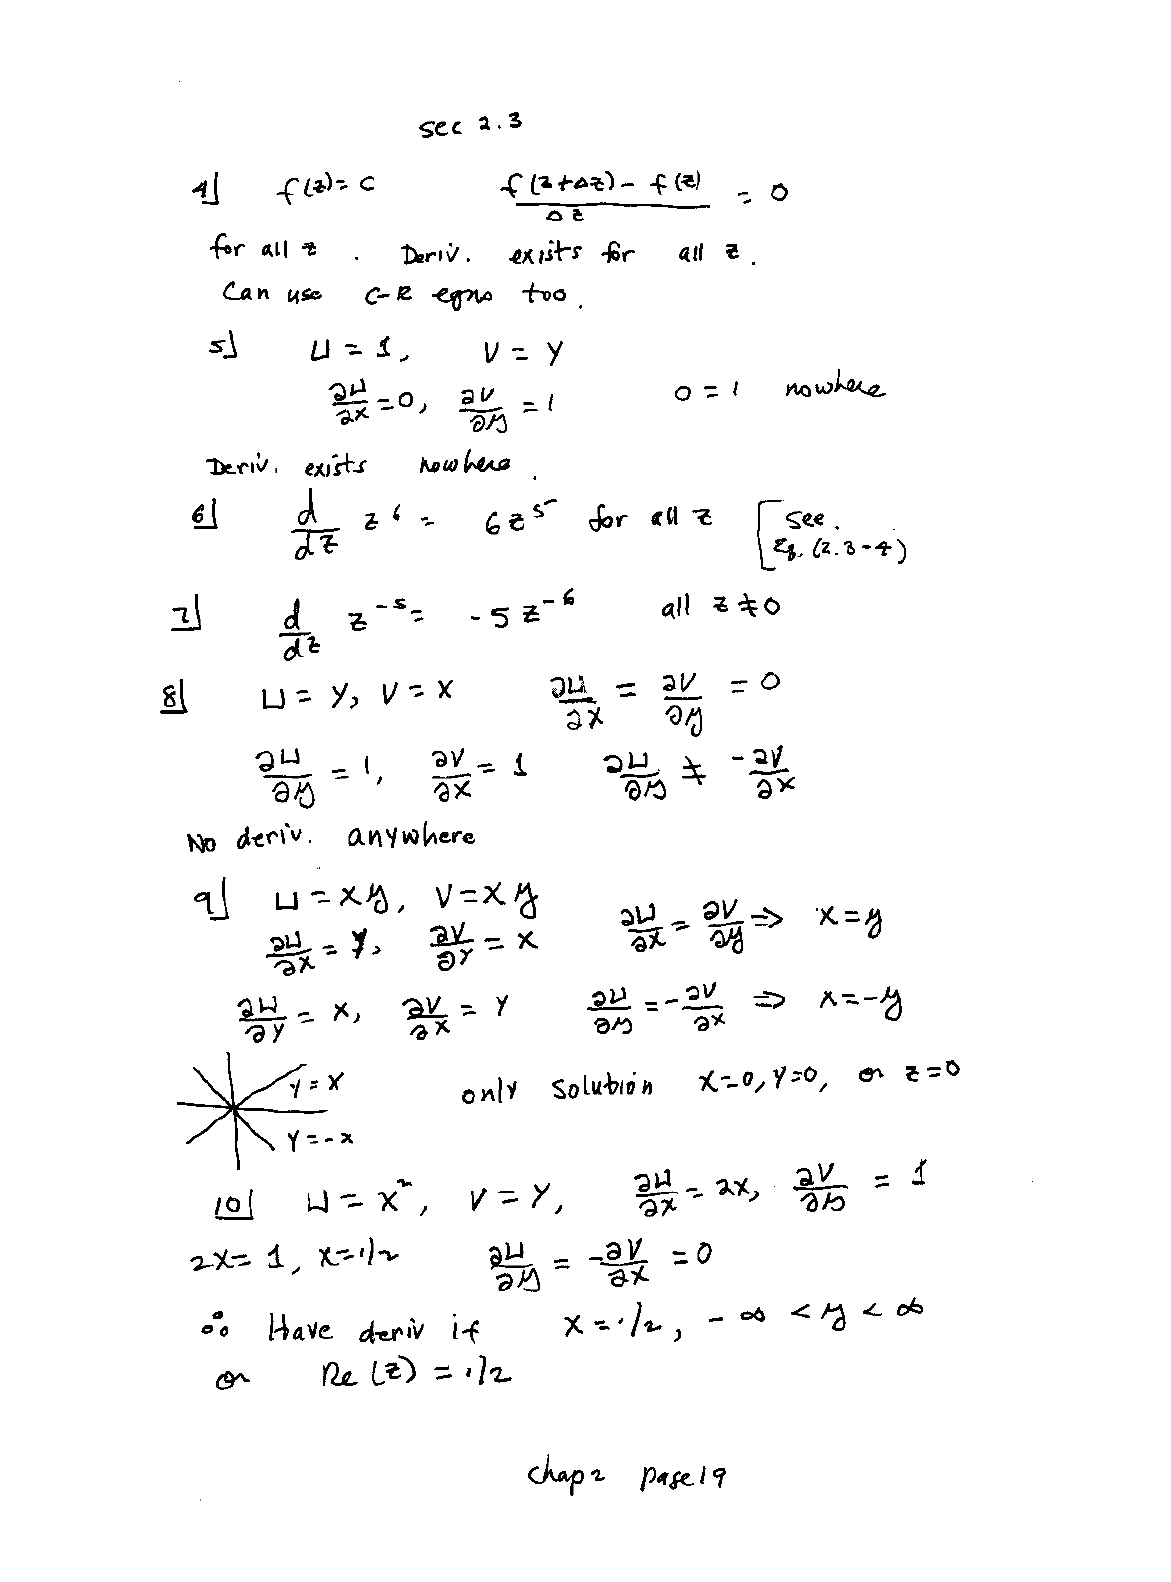 sec 2.3
4] f(z)= c (f(z+Δz) - f(z))/Δz = 0
for all z . Deriv. exists for all z.
Can use C-R eqns too.
5] u = 1, v = y
∂u/∂x = 0, ∂v/∂y = 1 0 = 1 nowhere
Deriv. exists nowhere.
6] d/dz z^6 = 6z^5 for all z [See. Eq. (2.3-4)
7] d/dz z^-5 = -5 z^-6 all z ≠ 0
8] u = y, v = x ∂u/∂x = ∂v/∂y = 0
∂u/∂y = 1, ∂v/∂x = 1 ∂u/∂y ≠ -∂v/∂x
No deriv. anywhere
9] u = xy, v = xy
∂u/∂x = y, ∂v/∂y = x ∂u/∂x = ∂v/∂y ⇒ x = y
∂u/∂y = x, ∂v/∂x = y ∂u/∂y = -∂v/∂x ⇒ x = -y
y = x only solution x=0, y=0, or z=0
y = -x
10] u = x², v = y, ∂u/∂x = 2x, ∂v/∂y = 1
2x = 1, x = 1/2 ∂u/∂y = -∂v/∂x = 0
∴ Have deriv if x = 1/2, -∞ < y < ∞
or Re(z) = 1/2
chap 2 page 19